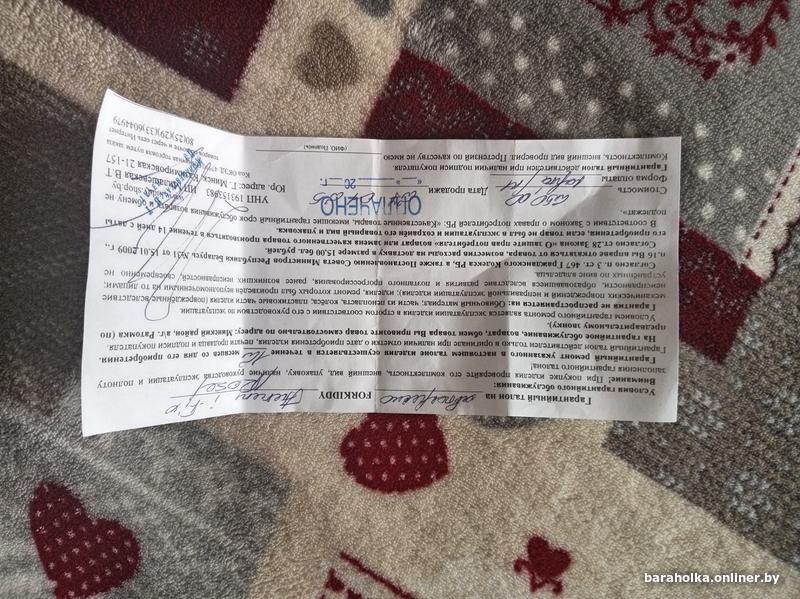 Гарантийный талон на автокресло FORKIDDY Harmony i-Fix
Условия гарантийного обслуживания:
Внимание: При покупке изделия проверьте его комплектность, внешний вид, упаковку, наличие руководства эксплуатации и полноту
заполнения гарантийного талона.
Гарантийный ремонт указанного в настоящем талоне изделия осуществляется в течение месяцев со дня его приобретения.
Гарантийный талон действителен только в оригинале при наличии отметки о дате приобретения товара и подписи покупателя.
На гарантийное обслуживание, возврат, обмен товара Вы привозите товар самостоятельно по адресу: Минский район, а/г. Ратомка (по
предварительному звонку).
Условием гарантийного ремонта является эксплуатация изделия в строгом соответствии с его руководством по эксплуатации.
Гарантия не распространяется на: Обивочный материал, части из пенопласта, колёса, пластиковые части изделия (повреждённые вследствие
механических повреждений и неправильной эксплуатации изделия), изделия, ремонт которых был произведён неуполномоченными на то лицами;
неисправности, образовавшиеся вследствие развития и поэтапного прогрессирования, ранее возникших неисправностей, своевременно не
устранённых по вине владельца.
Согласно п. 3 ст. 467 Гражданского Кодекса РБ, а также Постановлению Совета Министров Республики Беларусь №31 от 15.01.2009 г.,
п. 16 Вы вправе отказаться от товара, возместив расходы на доставку в размере 15,00 бел. рублей.
Согласно ст. 28 Закона «О защите прав потребителя» возврат или замена качественного товара производиться в течение 14 дней с даты
его приобретения, если товар не был в эксплуатации и сохранен его товарный вид и упаковка.
В соответствии с Законом о правах потребителей РБ: «Качественные товары, имеющие гарантийный срок обслуживания возврату и обмену не
подлежат».
Стоимость 250,00
Форма оплаты Дата продажи « » 20 г.
ОПЛАЧЕНО
Гарантийный талон действителен при наличии подписи покупателя
Комплектность, внешний вид проверил. Претензий по качеству не имею
(ФИО, Подпись)
УНП 193153983 ИП
Юр. адрес: Г. Минск, 21-157
80(25)(29)(33)6044979